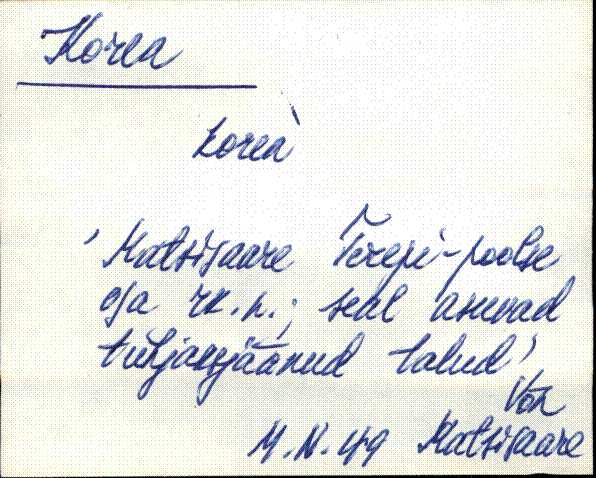 Korea
korea
'Matsisaare Terepi-poolse
osa rk.n.; seal asuvad
tühjaksjäänud talud'
Võn
M.N. 49 Matsisaare